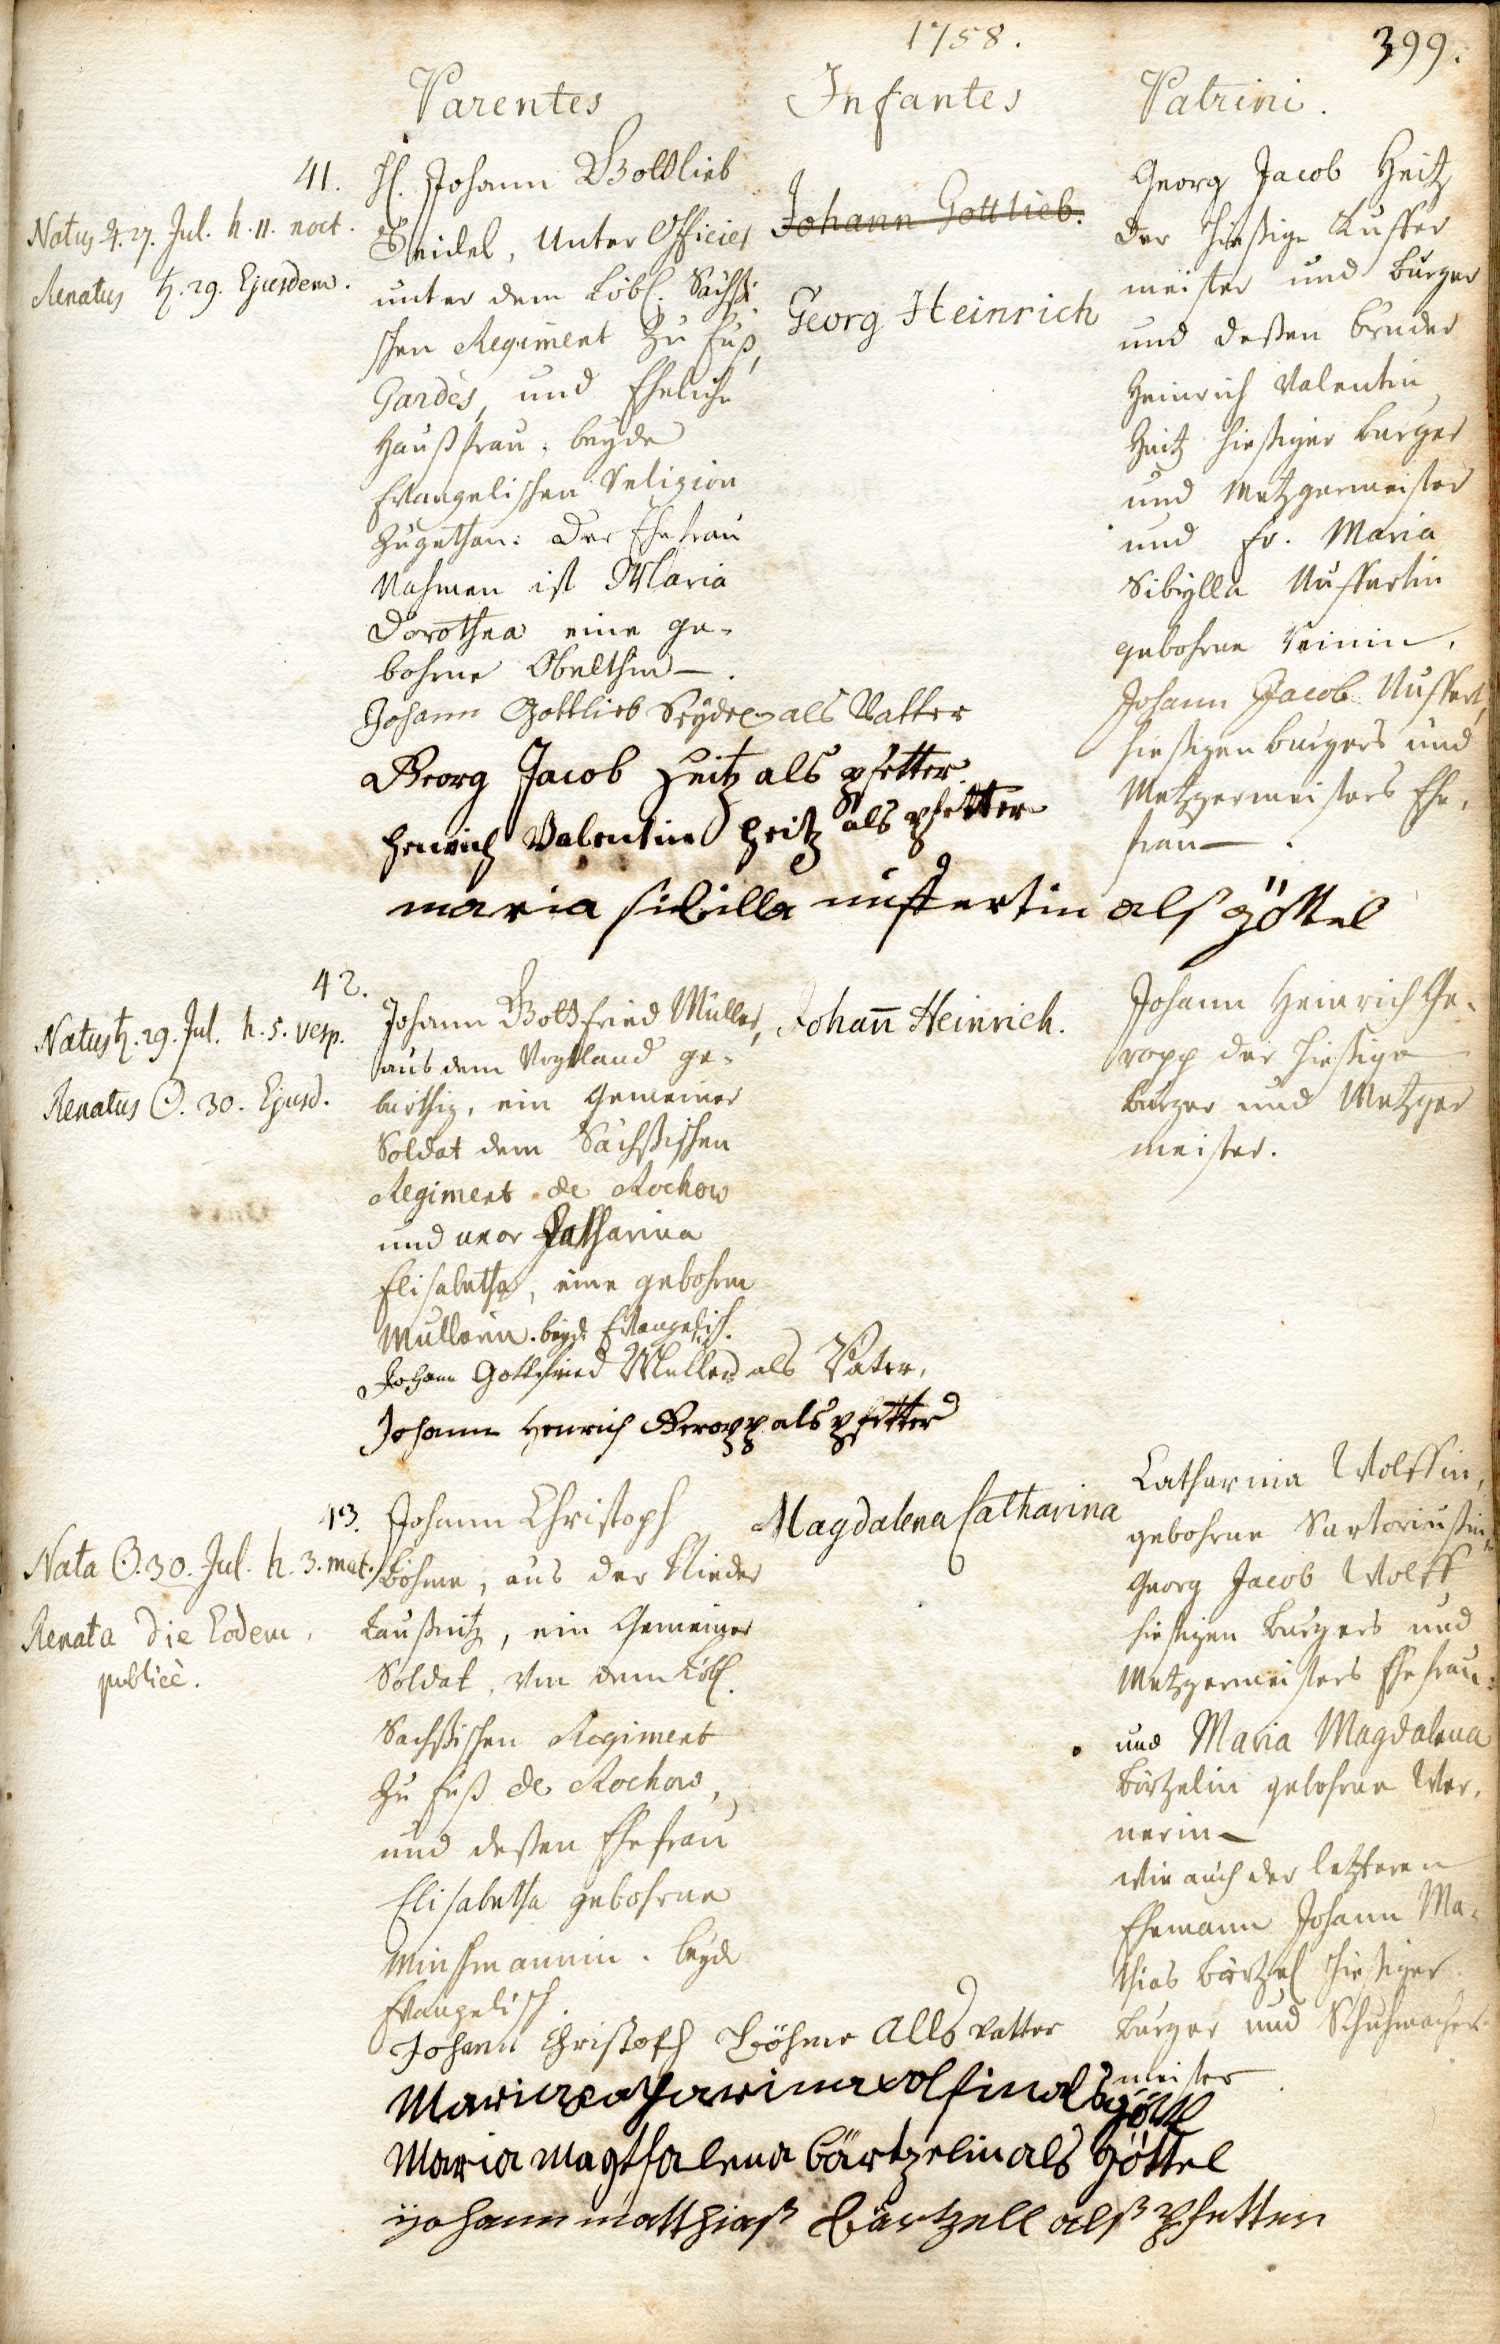 1758.
399.
Parentes
Infantes
Patrini.
41.
Natus ♃. 27. Jul. h. 11. noct.
Renatus ♄. 29. Ejusdem.
H. Johann Gottlieb
Seidel, Unter Officier
unter dem Löbl. Sächsi
schen Regiment zu Fuß,
Gardes, und Eheliche
Haußfrau: beyde
Evangelischen Religion
zugethan: Der Ehefrau
Nahmen ist Maria
Dorothea eine ge-
bohrne
Johann Gottlieb Seydel als Vatter
Georg Jacob Heitz als pfetter
Henrich Valentin Heitz als pfetter
maria sibilla nussertin als göttel
Johann Gottlieb.
Georg Heinrich
Georg Jacob Heitz
der hießige Kuffer
meister und burger
und deßen bruder
Heinrich Valentin
Heitz hießiger burger
und Metzgermeister
und Fr. Maria
Sibylla Nussertin
gebohrne
Johann Jacob Nussert,
hießigen burgers und
Metzgermeisters Ehe-
frau.
42.
Natus ♄. 29. Jul. h. 5. vesp.
Renatus ☉. 30. Ejusd.
Johann Gottfried Müller,
aus dem Vogtland ge-
bürthig, ein Gemeiner
Soldat dem Sächßischen
Regiment de Rochow
und uxor Catharina
Elisabetha, eine gebohrne
Müllerin. beyde Evangelisch.
Johann Gottfried Müller als Vater,
Johann Henrich Geropp als pfetter
Johan̄ Heinrich.
Johann Heinrich Ge-
ropp der hießige
burger und Metzger
meister.
43.
Nata ☉. 30. Jul. h. 3. mat.
Renata die Eodem,
publicè.
Johann Christoph
Böhme, aus der Nieder
Laußnitz, ein Gemeiner
Soldat, von dem Löbl.
Sachßischen Regiment
zu Fuß de Rochow,
und deßen Ehefrau
Elisabetha gebohrne
beyde
Evangelisch.
Johann Christoph Böhme Alls vatter
Maria Catharina wolfin als göttel
Maria Magthalena bärtzelin als göttel
yohann matthias Bärtzell alß pfetter
Magdalena Catharina
Catharina Wolffin,
gebohrne Sartoriußin,
Georg Jacob Wolff
hießigen burgers und
Metzgermeisters Ehefrau:
und Maria Magdalena
Bärtzelin gebohrne Wer-
nerin
wie auch der letzteren
Ehemann Johann Ma-
thias Bärtzel hießiger
burger und Schuhmacher-
meister